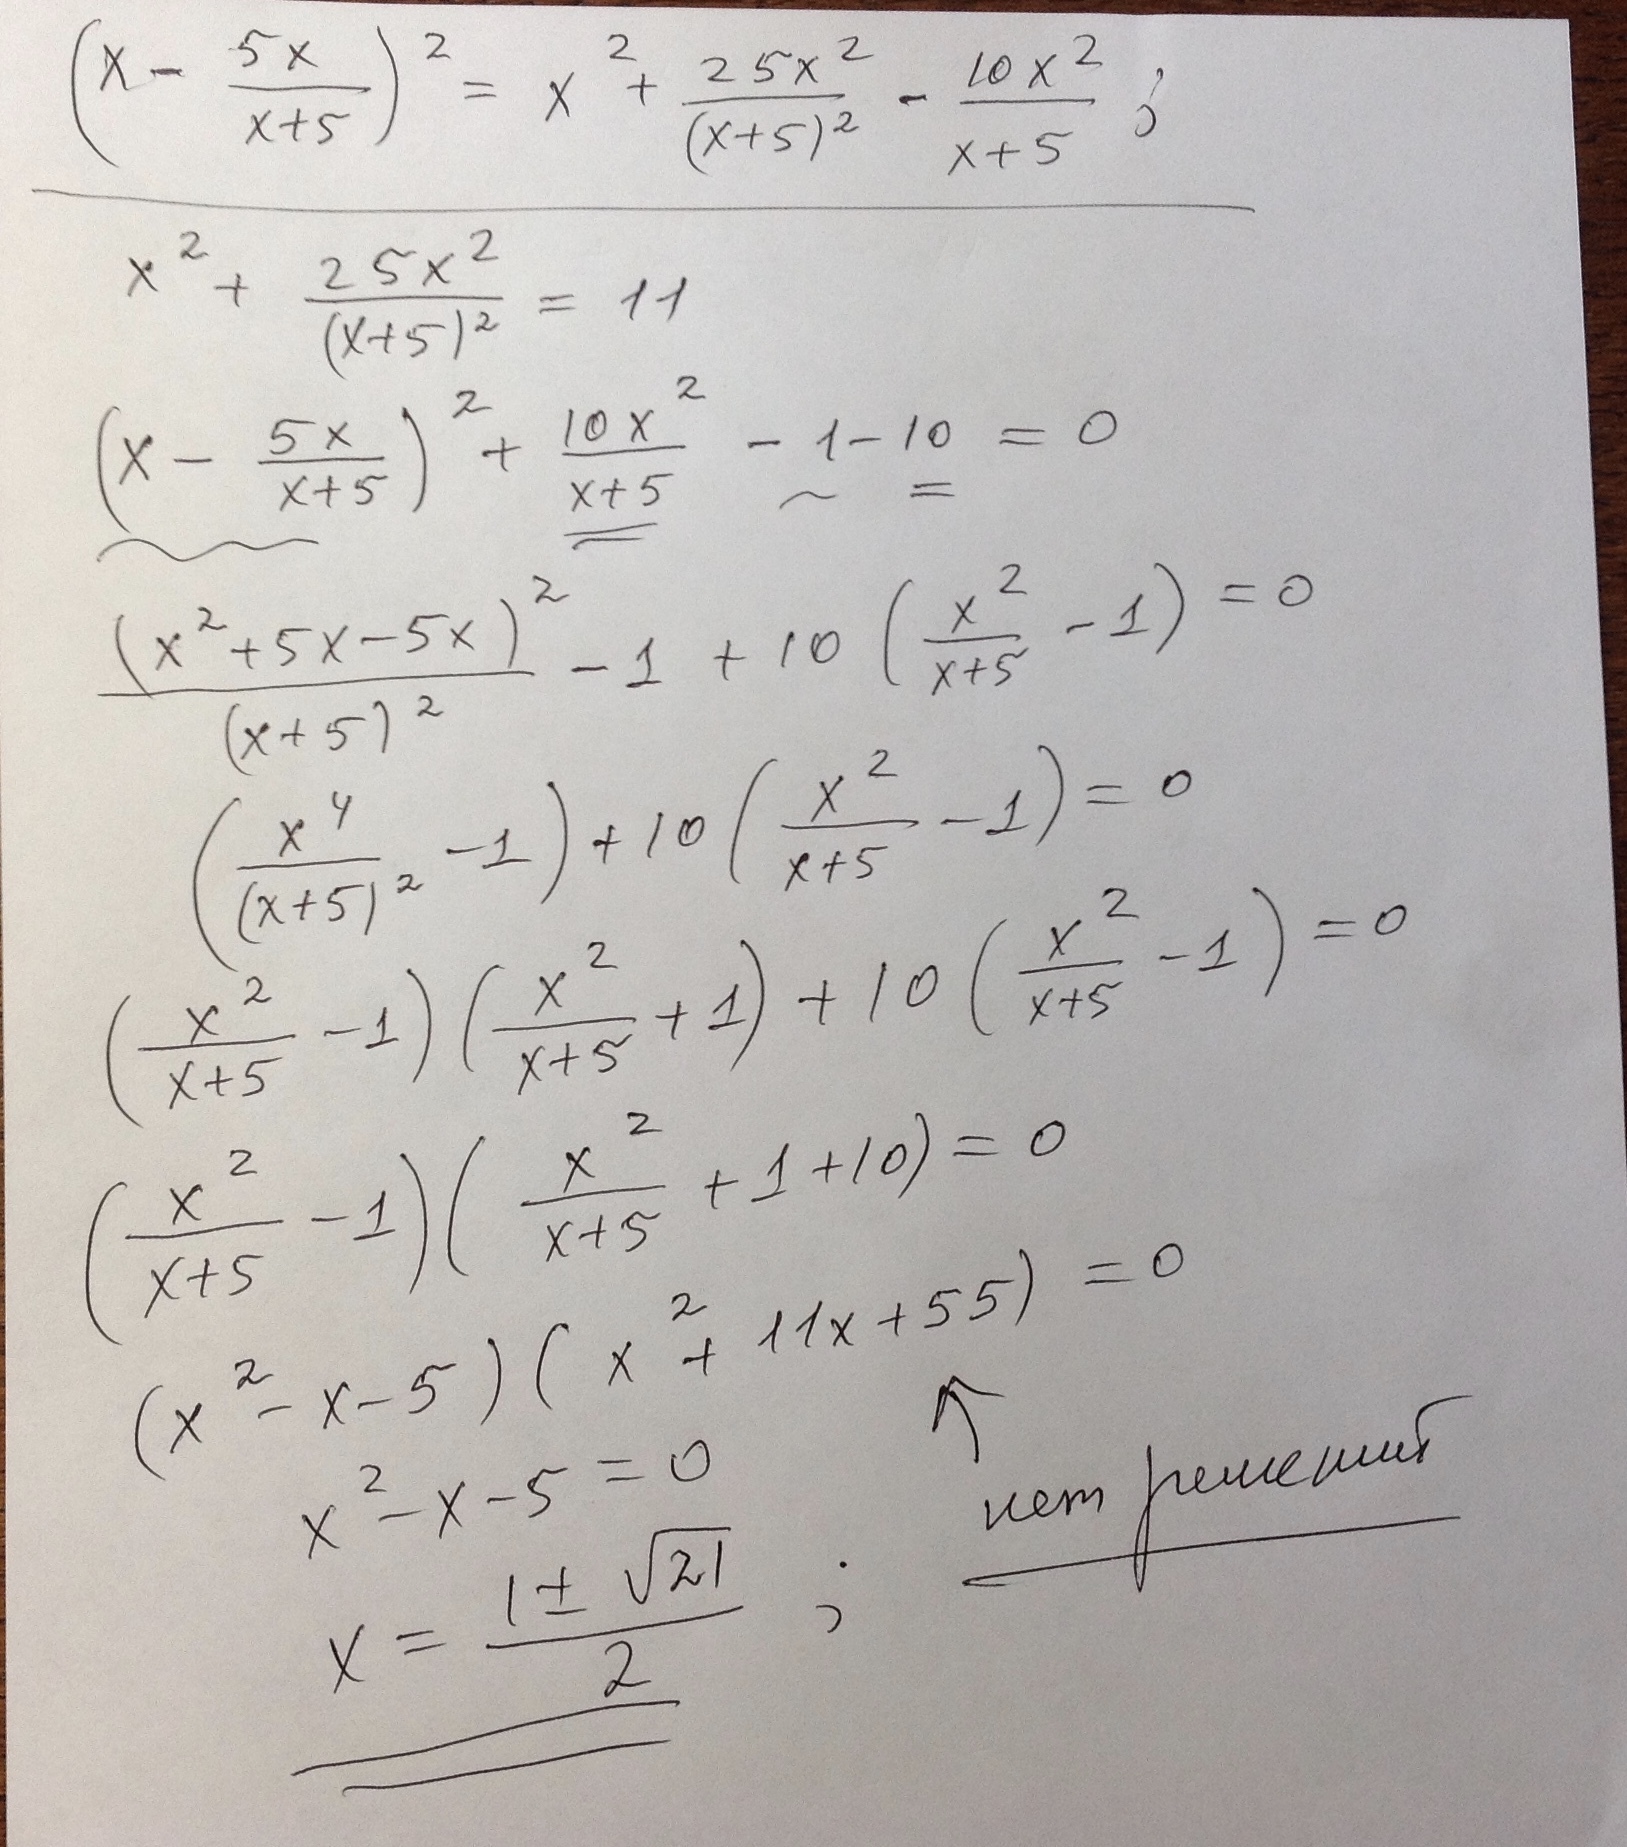 (x - 5x/(x+5))² = x² + 25x²/(x+5)² - 10x²/(x+5) ;
x² + 25x²/(x+5)² = 11
(x - 5x/(x+5))² + 10x²/(x+5) - 1 - 10 = 0
(x² + 5x - 5x)²/(x+5)² - 1 + 10 (x²/(x+5) - 1) = 0
(x⁴/(x+5)² - 1) + 10 (x²/(x+5) - 1) = 0
(x²/(x+5) - 1) (x²/(x+5) + 1) + 10 (x²/(x+5) - 1) = 0
(x²/(x+5) - 1) (x²/(x+5) + 1 + 10) = 0
(x² - x - 5) (x² + 11x + 55) = 0
x² - x - 5 = 0
↑ нет решений
x = (1 ± √21)/2 ;